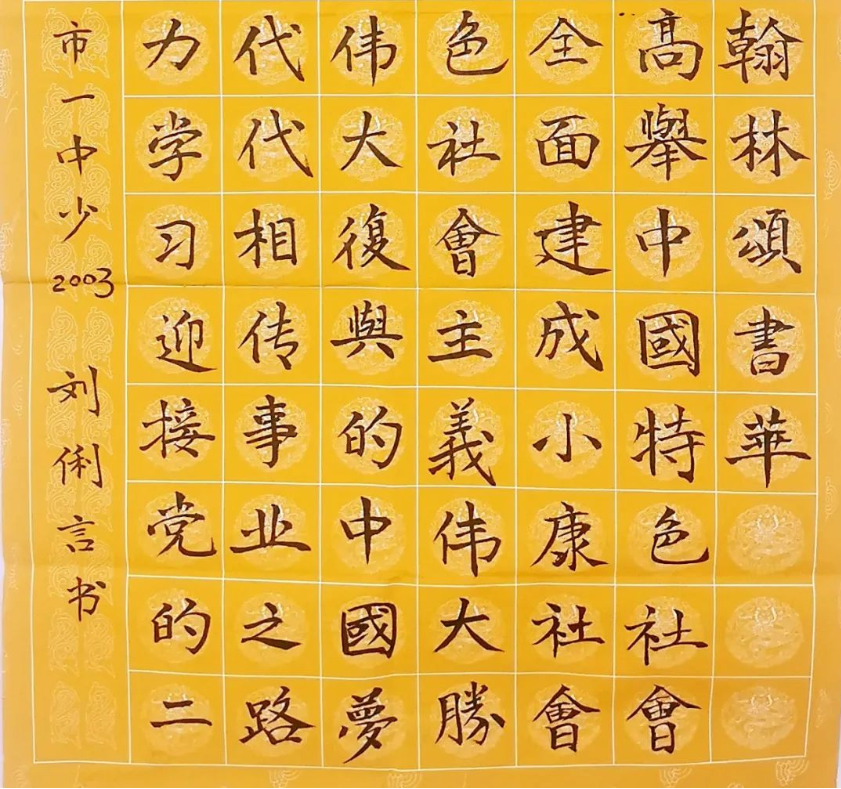 翰林頌書華
髙舉中國特色社會
全面建成小康社會
色社會主義伟大勝
伟大復興的中國夢
代代相传事业之路
力学习迎接党的二
市一中少2003 刘俐言书